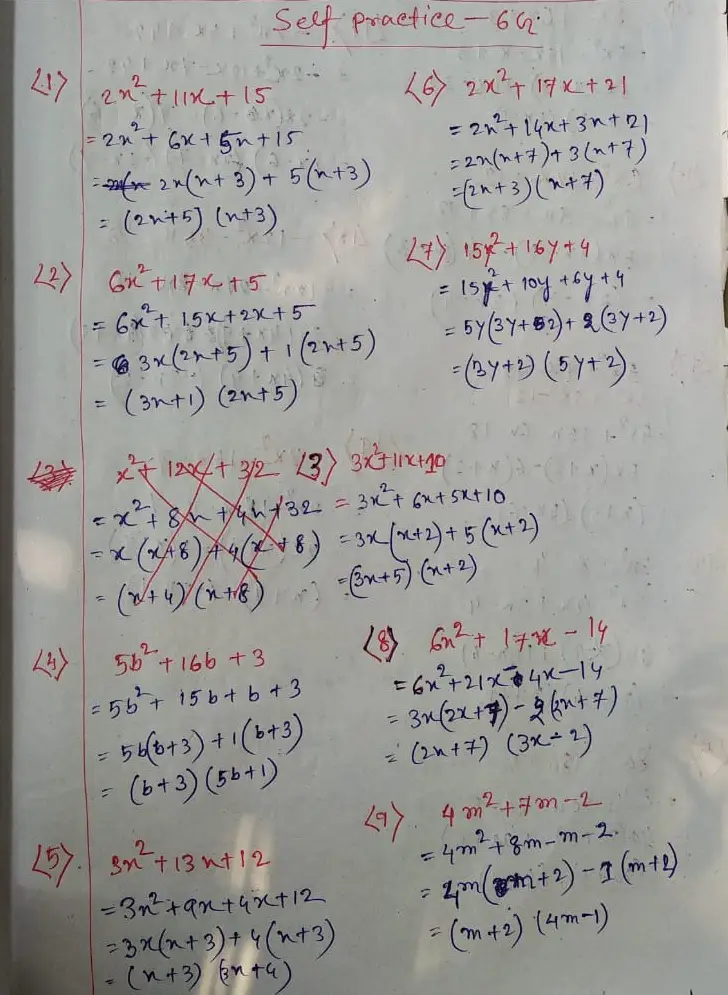 Self practice - 6G.
(1) 2x² + 11x + 15
= 2x² + 6x + 5x + 15
= 2x(x + 3) + 5(x + 3)
= (2x + 5) (x + 3)
(2) 6x² + 17x + 5
= 6x² + 15x + 2x + 5
= 3x(2x + 5) + 1(2x + 5)
= (3x + 1) (2x + 5)
x² + 12x + 32
= x² + 8x + 4x + 32
= x(x + 8) + 4(x + 8)
= (x + 4) (x + 8)
(3) 3x² + 11x + 10
= 3x² + 6x + 5x + 10
= 3x(x + 2) + 5(x + 2)
= (3x + 5) (x + 2)
(4) 5b² + 16b + 3
= 5b² + 15b + b + 3
= 5b(b + 3) + 1(b + 3)
= (b + 3) (5b + 1)
(5) 3x² + 13x + 12
= 3x² + 9x + 4x + 12
= 3x(x + 3) + 4(x + 3)
= (x + 3) (3x + 4)
(6) 2x² + 17x + 21
= 2x² + 14x + 3x + 21
= 2x(x + 7) + 3(x + 7)
= (2x + 3) (x + 7)
(7) 15y² + 16y + 4
= 15y² + 10y + 6y + 4
= 5y(3y + 2) + 2(3y + 2)
= (3y + 2) (5y + 2)
(8) 6x² + 17x - 14
= 6x² + 21x - 4x - 14
= 3x(2x + 7) - 2(2x + 7)
= (2x + 7) (3x - 2)
(9) 4m² + 7m - 2
= 4m² + 8m - m - 2
= 4m(m + 2) - 1(m + 2)
= (m + 2) (4m - 1)